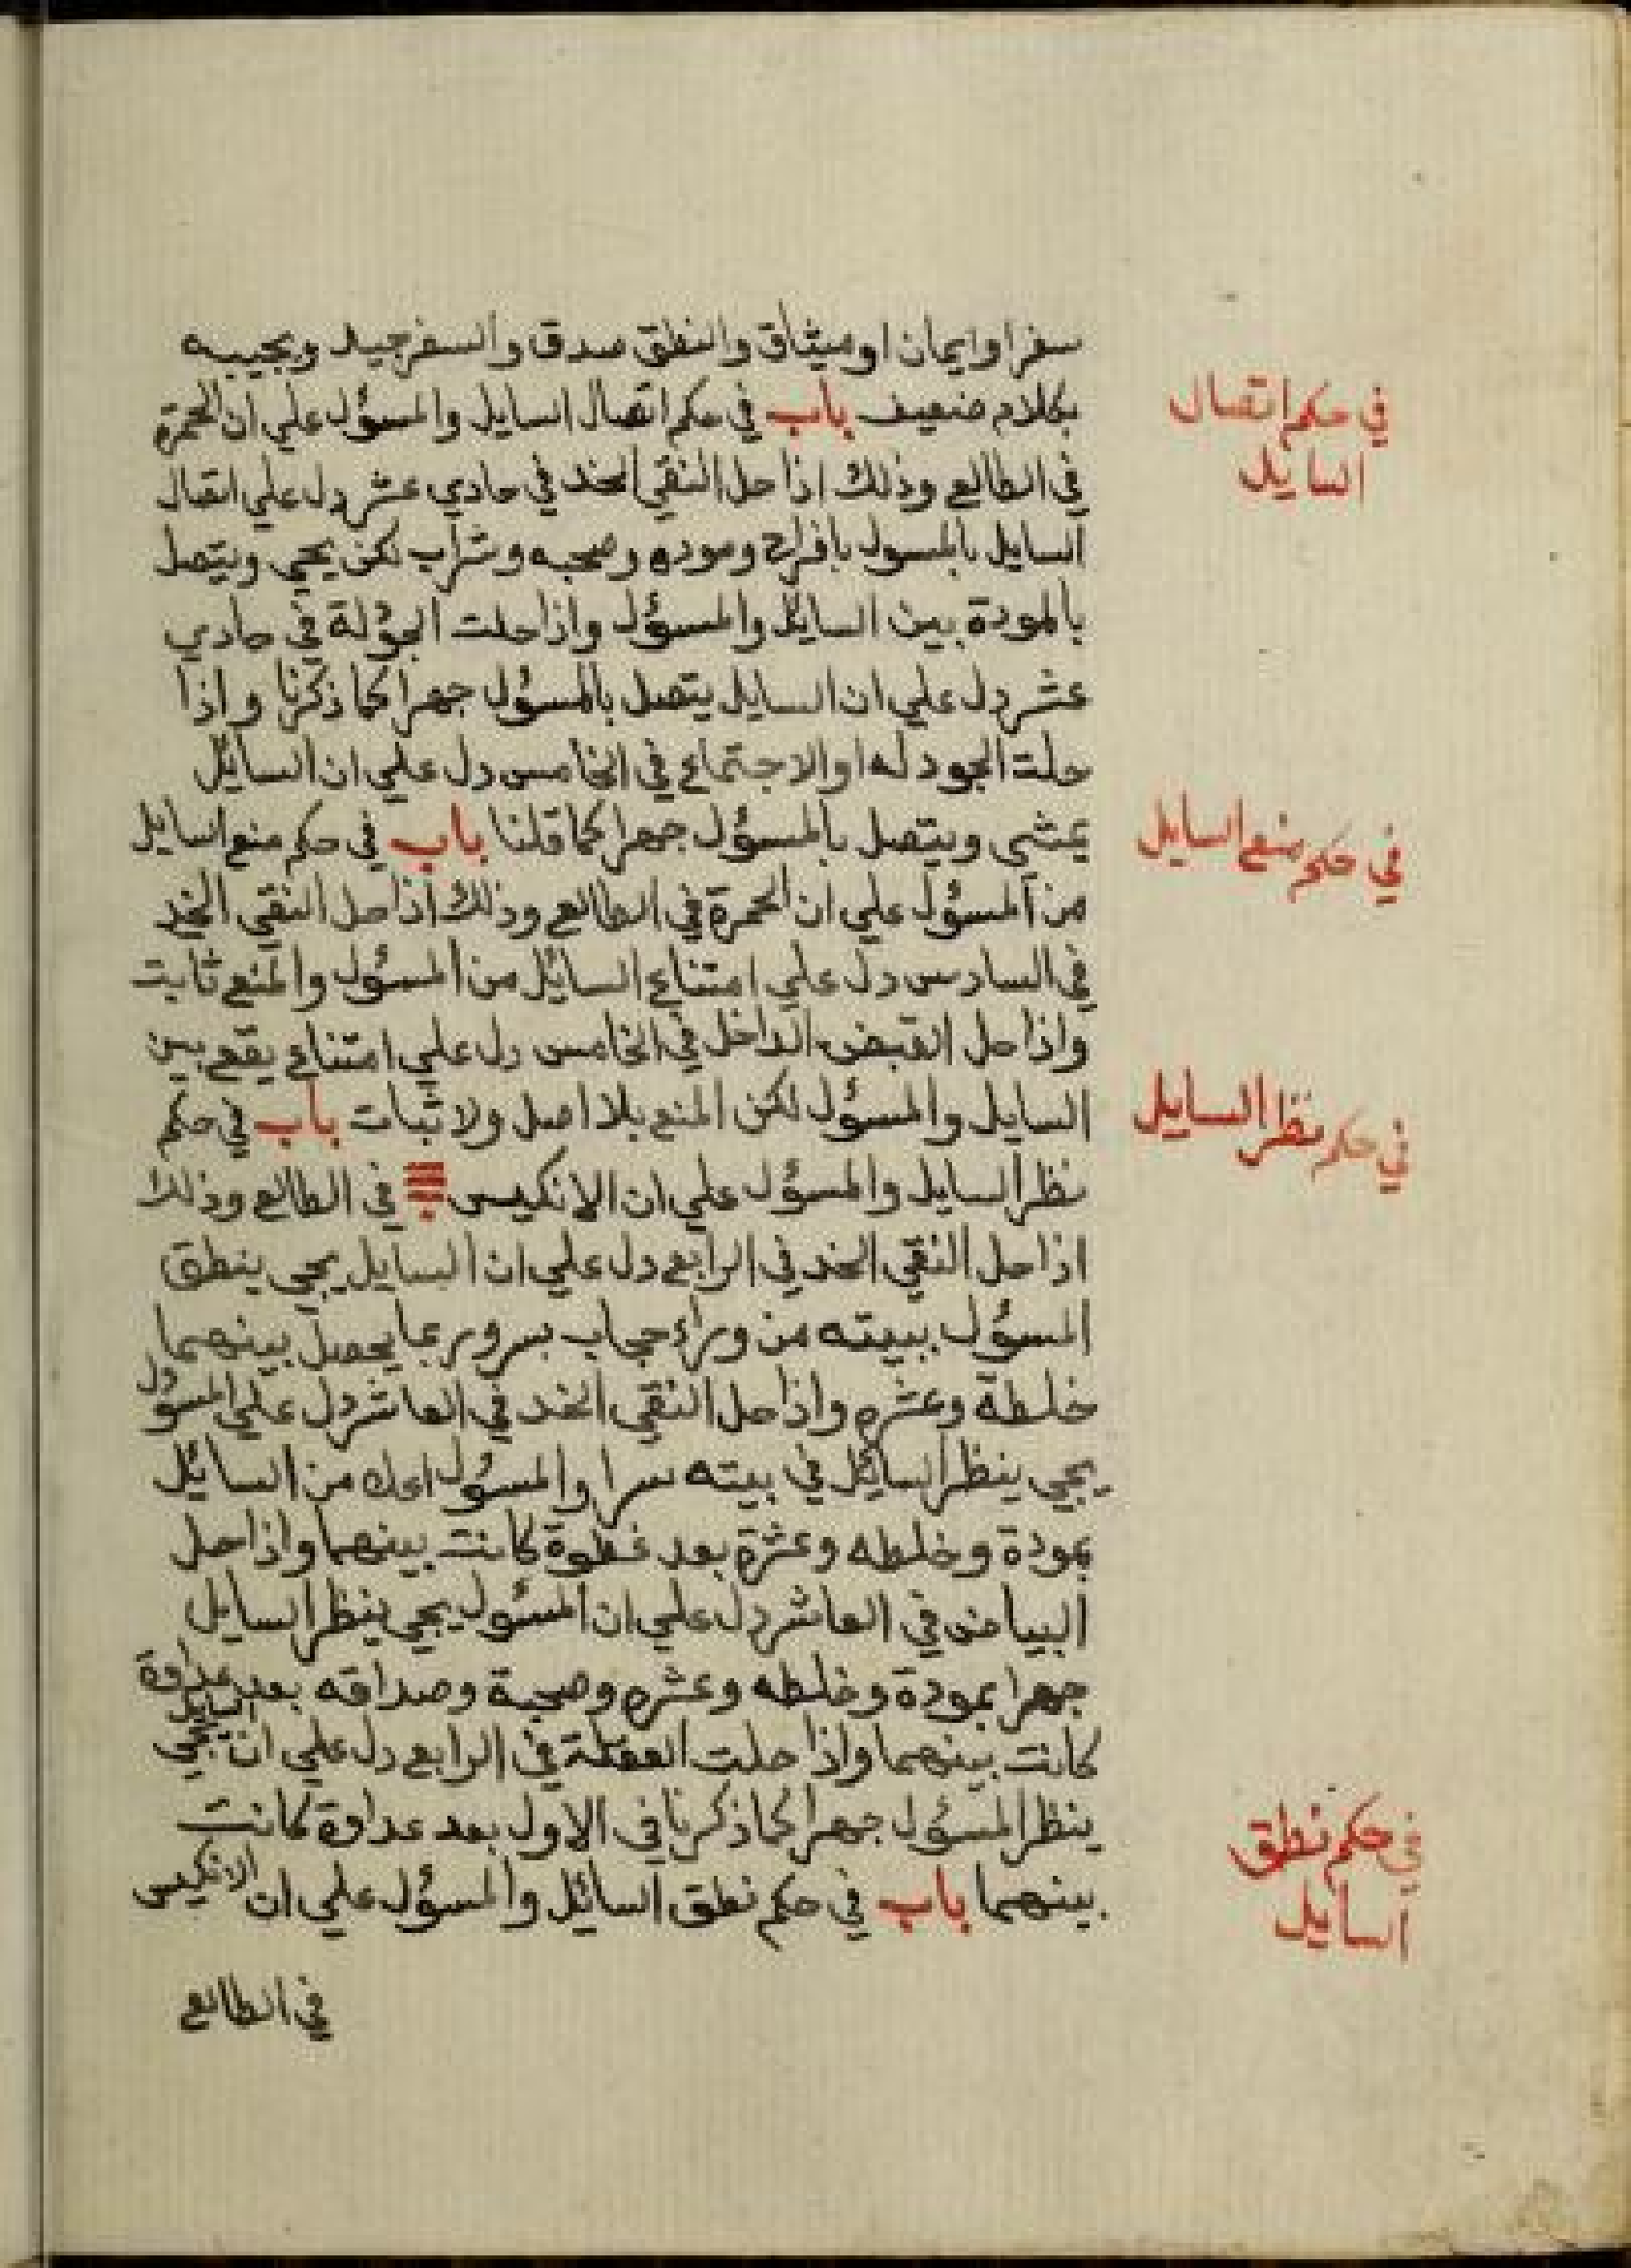 سفرا وايمان او ميثاق والنطق صدق والسفر جيد ويجيبه
بكلام ضعيف باب في حكم اتصال السايل والمسؤل علي ان الحمرة
في حكم اتصال
السايل
في الطالع وذلك اذا حل النقي الخد في حادي عشر دل علي اتصال
السايل بالمسول بافراح وموده وصحبه وشراب لكن يجي ويتصل
بالمودة بين السايل والمسؤل واذا حلت الجودلة في حادي
عشر دل علي ان السايل يتصل بالمسؤل جهرا كما ذكرنا واذا
حلت الجودله او الاجتماع في الخامس دل علي ان السائل
يمشي ويتصل بالمسؤل جهرا كما قلنا باب في حكم منع السايل
في حكم منع السايل
من المسؤل علي ان الحمرة في الطالع وذلك اذا حل النقي الخد
في السادس دل علي امتناع السائل من المسؤل والمنع ثابت
واذا حل القبض الداخل في الخامس دل علي امتناع يقع بين
السايل والمسؤل لكن المنع بلا اصل ولا ثبات باب في حكم
في حكم نظر السايل
نظر السايل والمسؤل علي ان الانكيس في الطالع وذلك
اذا حل النقي الخد في الرابع دل علي ان السايل يجي ينطق
المسؤل ببيته من وراء حجاب بسرور بما يحصل بينهما
خلطة وعشره واذا حل النقي الخد في العاشر دل علي المسؤل
يجي ينظر السائل في بيته سرا والمسؤل من السائل
بمودة وخلطه وعشرة بعد كانت بينهما واذا حل
البياض في العاشر دل علي ان المسؤل يجي ينظر السايل
جهرا بمودة وخلطه وعشره وصحبة وصداقه بعد عداوة
كانت بينهما واذا حلت العقلة في الرابع دل علي ان السايل يجي
ينظر المسؤل جهرا كما ذكرنا في الاول بعد عداوة كانت
بينهما باب في حكم نطق السائل والمسؤل علي ان الانكيس
في حكم نطق
السايل
في الطالع